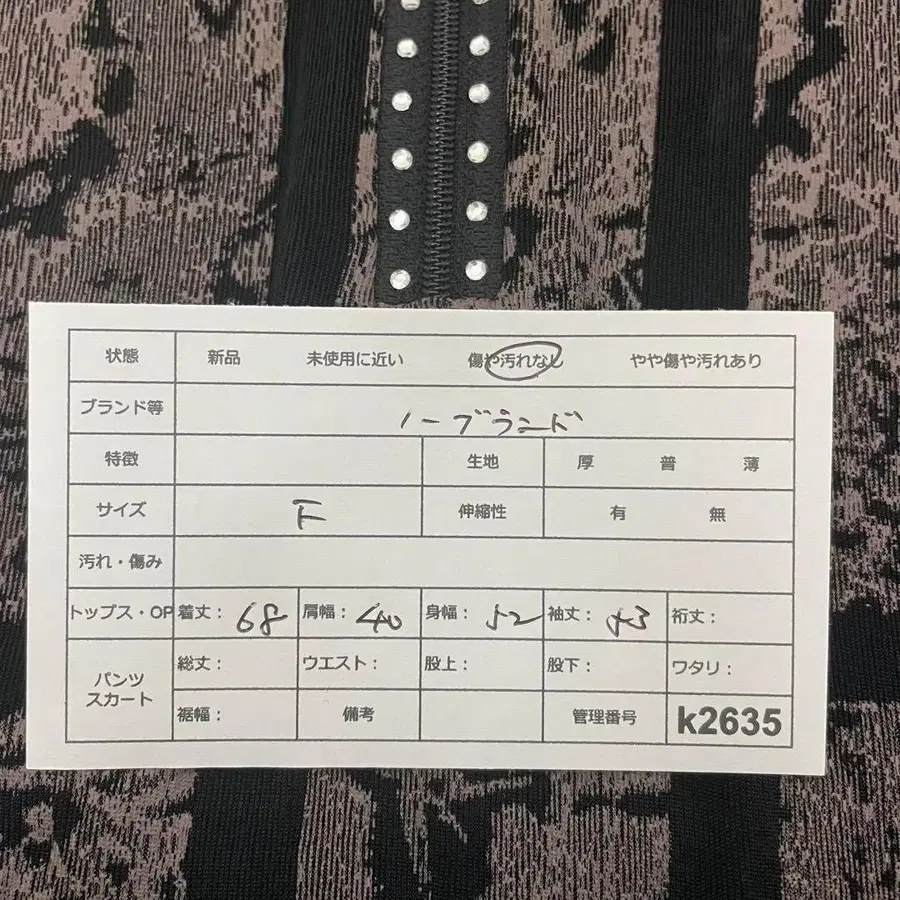 状態 新品 未使用に近い 傷や汚れなし やや傷や汚れあり
ブランド等 ノーブランド
特徴 生地 厚 普 薄
サイズ F 伸縮性 有 無
汚れ・傷み
トップス・OP 着丈: 68 肩幅: 40 身幅: 52 袖丈: 43 裄丈:
パンツ スカート 総丈: ウエスト: 股上: 股下: ワタリ:
裾幅: 備考 管理番号 k2635